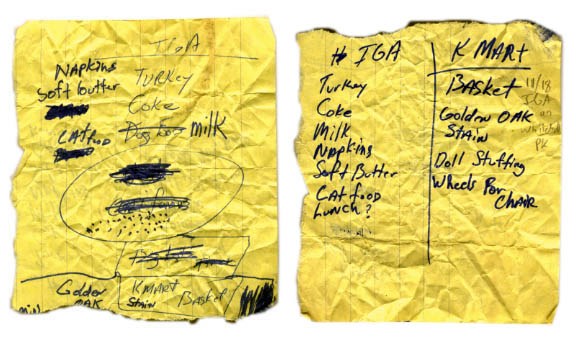 IGA
Napkins
Soft butter
TURKEY
Coke
CATFOOD
Dog Food MILK
Golden
OAK
KMART
Stain
Basket
IGA
Turkey
Coke
Milk
Napkins
Soft Butter
CAT food
Lunch?
K MART
BASKET
Golden OAK
STAIN
Doll Stuffing
Wheels For
CHAIR
11/18
IGA
on
PK